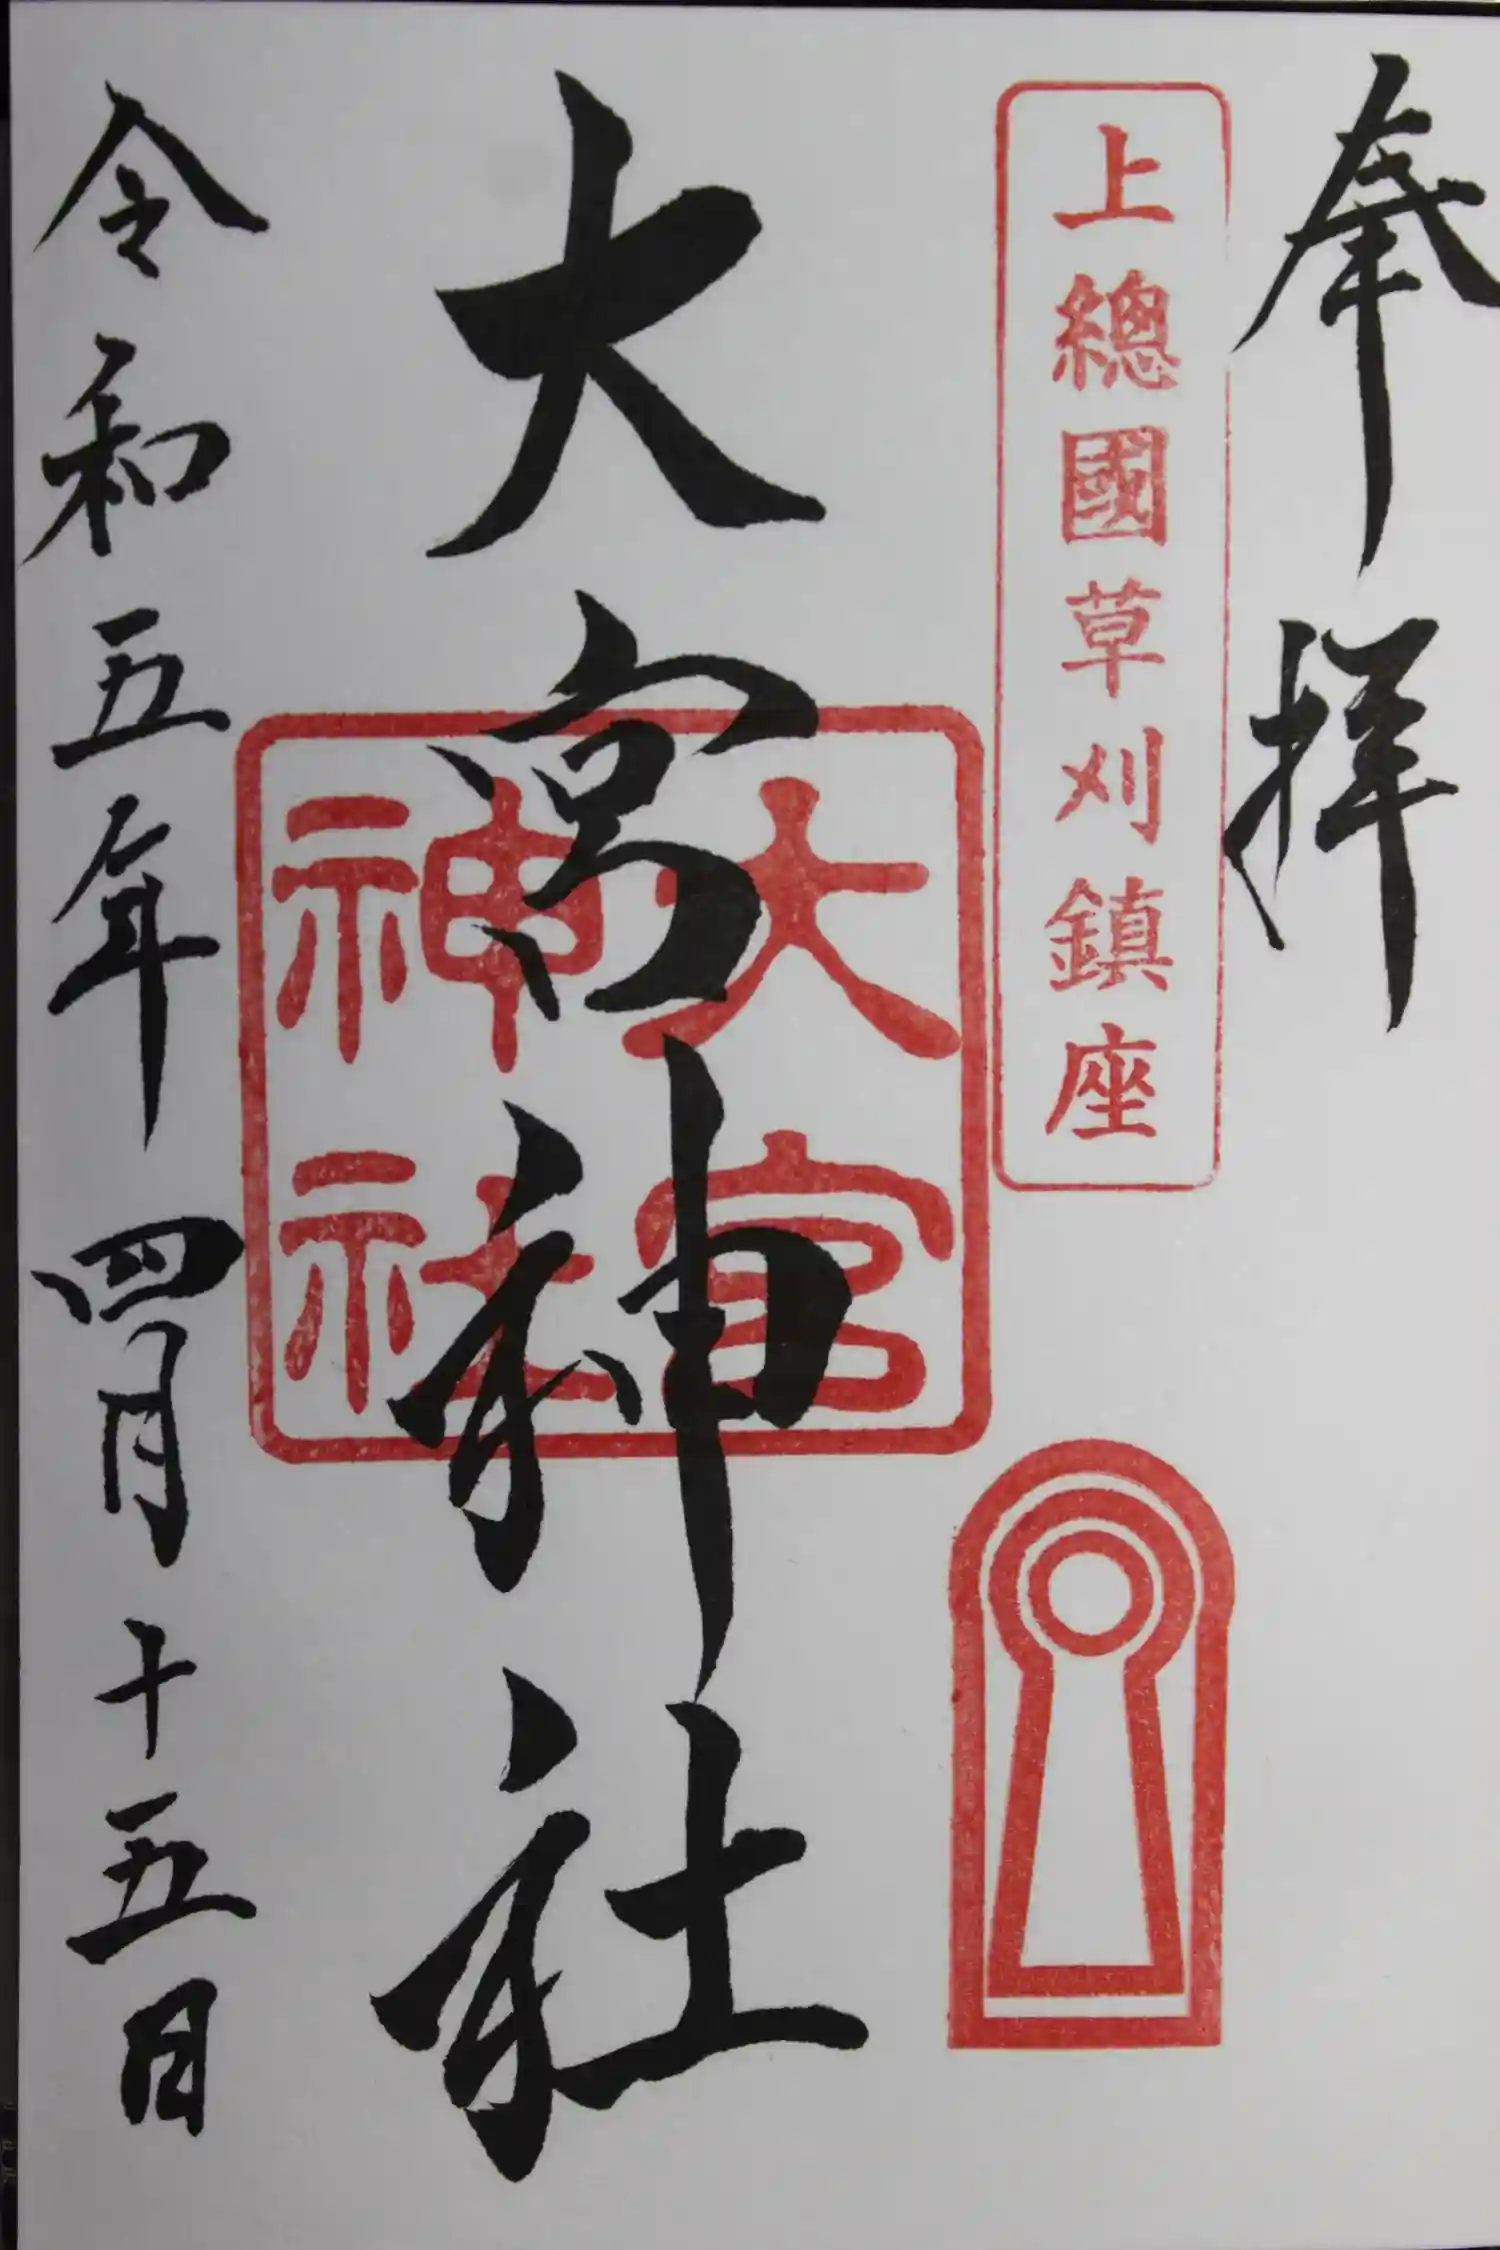 奉拝
上總國草刈鎮座
大宮神社
大宮
神社
令和五年四月十五日